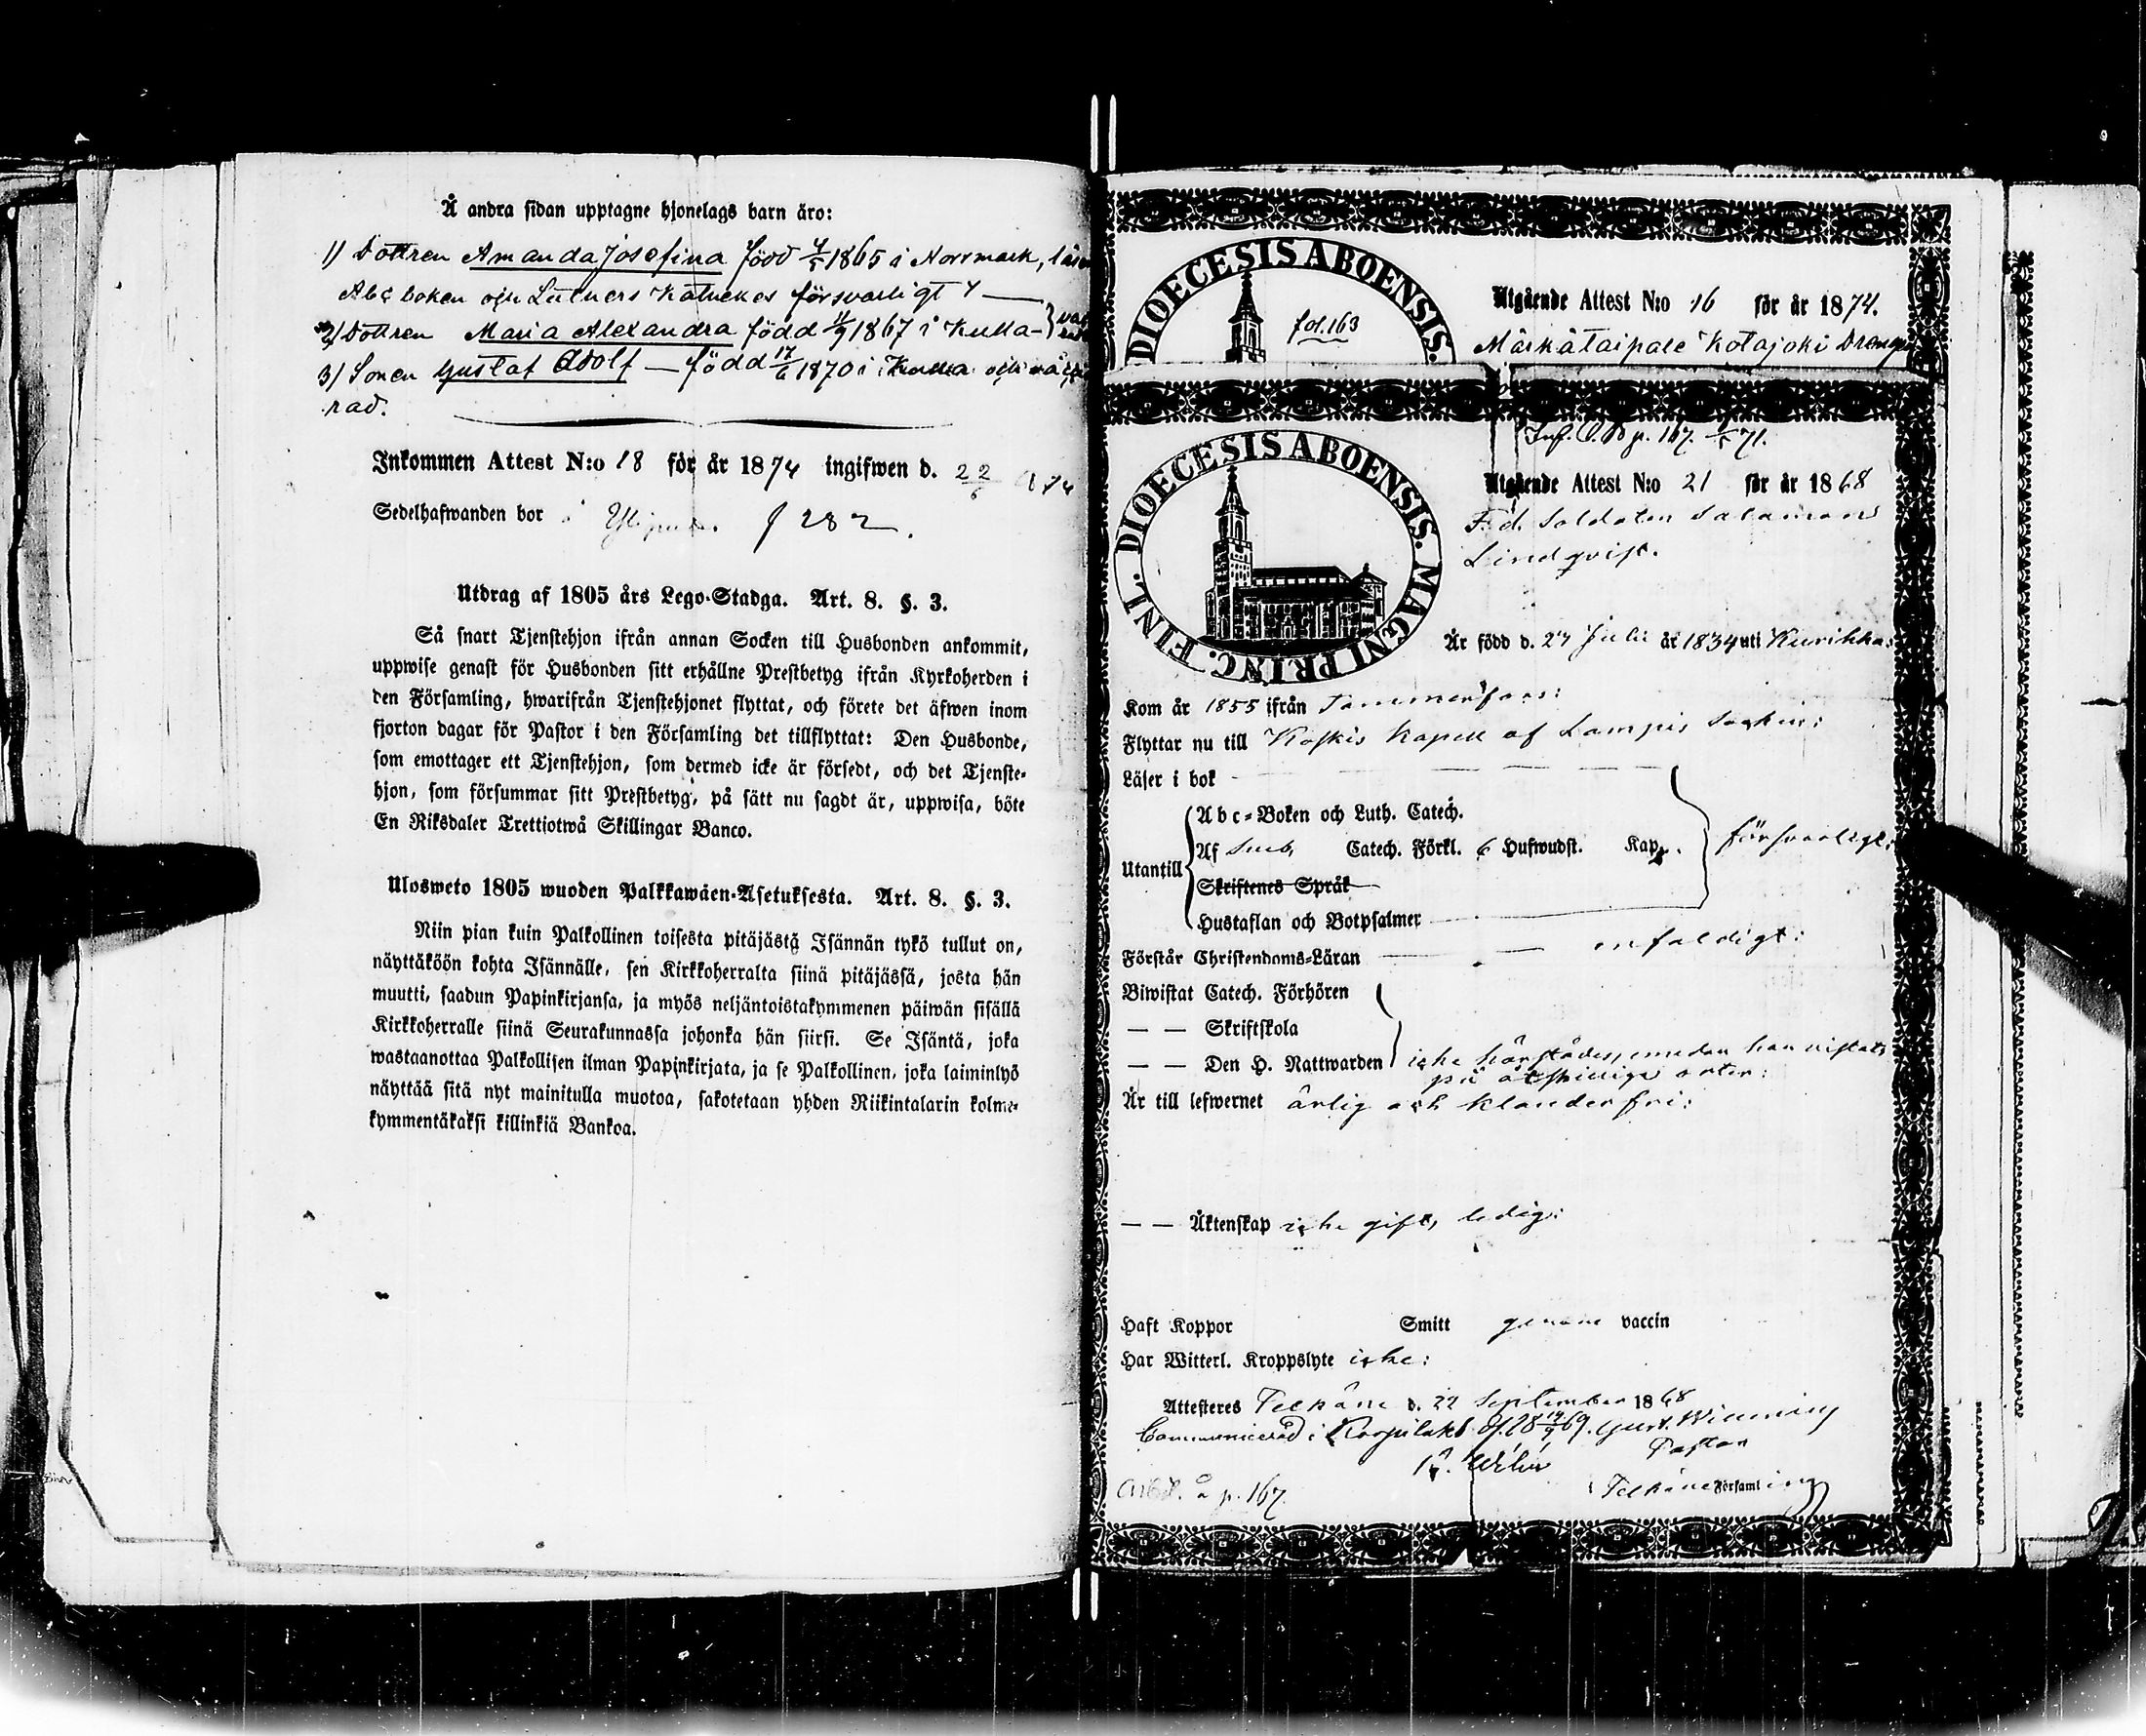 Å andra sidan upptagne hjonelags barn äro:
1) Dottren Amanda Josefina född 4/5 1865 i Norrmark, läser
Abc boken och Luthers Katekes försvarligt
2) Dottren Maria Alexandra född 11/9 1867 i Kulla-
3) Sonen Gustaf Adolf — född 17/6 1870 i Kulla och
rad.
Inkommen Attest N:o 18 för år 1874 ingifwen d. 22/6 74
Sedelhafwanden bor i f 282.
Utdrag af 1805 års Lego-Stadga. Art. 8. §. 3.
Så snart Tjenstehjon ifrån annan Socken till Husbonden ankommit,
uppwise genast för Husbonden sitt erhållne Prestbetyg ifrån Kyrkoherden i
den Församling, hwarifrån Tjenstehjonet flyttat, och förete det äfwen inom
fjorton dagar för Pastor i den Församling det tillflyttat: Den Husbonde,
som emottager ett Tjenstehjon, som dermed icke är försedt, och det Tjenste-
hjon, som försummar sitt Prestbetyg, på sätt nu sagdt är, uppwisa, böte
En Riksdaler Trettiotwå Skillingar Banco.
Ulosweto 1805 wuoden Palkkawäen-Asetuksesta. Art. 8. §. 3.
Niin pian kuin Palkollinen toisesta pitäjästä Isännän tykö tullut on,
näyttäköön kohta Isännälle, sen Kirkkoherralta siinä pitäjässä, josta hän
muutti, saadun Papinkirjansa, ja myös neljäntoistakymmenen päiwän sisällä
Kirkkoherralle siinä Seurakunnassa johonka hän siirsi. Se Isäntä, joka
wastaanottaa Palkollisen ilman Papinkirjata, ja se Palkollinen, joka laiminlyö
näyttää sitä nyt mainitulla muotoa, sakotetaan yhden Riikintalarin kolme-
kymmentäkaksi killinkiä Bankoa.
DIOECESIS ABOENSIS.
fol. 163
Utgående Attest N:o 16 för år 1874.
Märkätaipale Kotajoki Drengen
Inf. C. B p. 167. 71.
DIOECESIS ABOENSIS. MAGNI PRINC. FINL.
Utgående Attest N:o 21 för år 1868
F. d. Soldaten Salamon
Lindqvist.
Är född d. 27 Juli år 1834 uti Kurikka:
Kom år 1855 ifrån Tammerfors:
Flyttar nu till Koskis Kapell af Lampis Socken:
Läser i bok
Abc-Boken och Luth. Catech.
Utantill Af Sveb. Catech. Förkl. 6 Hufwudst. Kap. försvarligt:
Skriftenes Språk
Hustaflan och Botpsalmer
Förstår Christendoms-Läran enfaldigt:
Biwistat Catech. Förhören
— — Skriftskola
— — Den H. Nattwarden icke härstädes, emedan han vistats
på åtskilliga orter:
Är till lefwernet ärlig och klanderfri:
— — Äktenskap icke gift, ledig:
Haft Koppor Smitt genom vaccin
Har Witterl. Kroppslyte icke:
Attesteres Pelkäne d. 22 September 1868
Communicerad i Korpilaks d. 69. Gust. Winning
Pastor
p. 167.
Pelkäne Församling